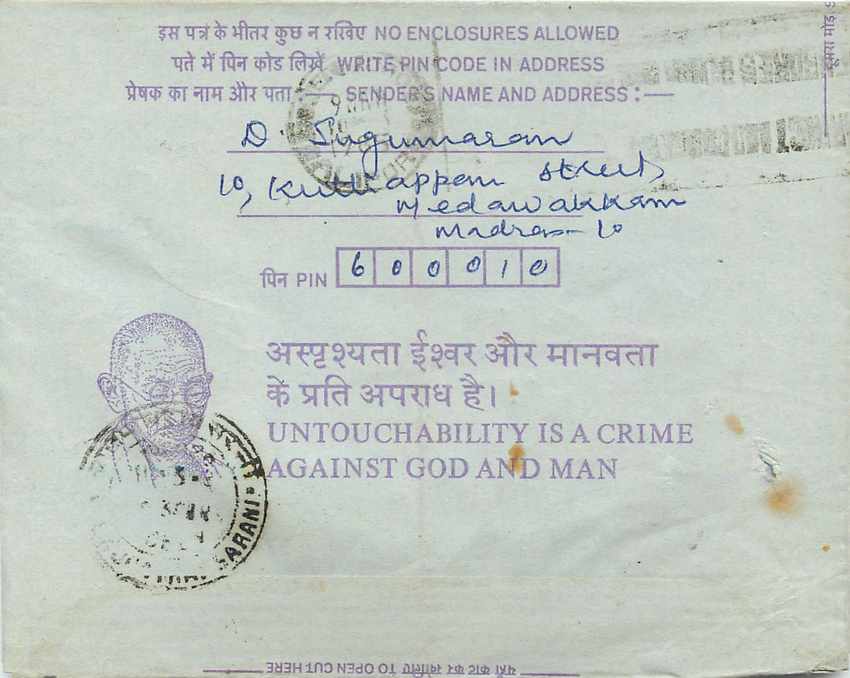 इस पत्र के भीतर कुछ न रखिए NO ENCLOSURES ALLOWED
पते में पिन कोड लिखें WRITE PIN CODE IN ADDRESS
प्रेषक का नाम और पता SENDER'S NAME AND ADDRESS :—
D. Sugumaran
10, Kuttiappan Street,
Medawakkam
Madras-10
पिन PIN 600010
अस्पृश्यता ईश्वर और मानवता
के प्रति अपराध है।
UNTOUCHABILITY IS A CRIME
AGAINST GOD AND MAN
SARANI
यहाँ काट कर खोलिए TO OPEN CUT HERE
दूसरा मोड़